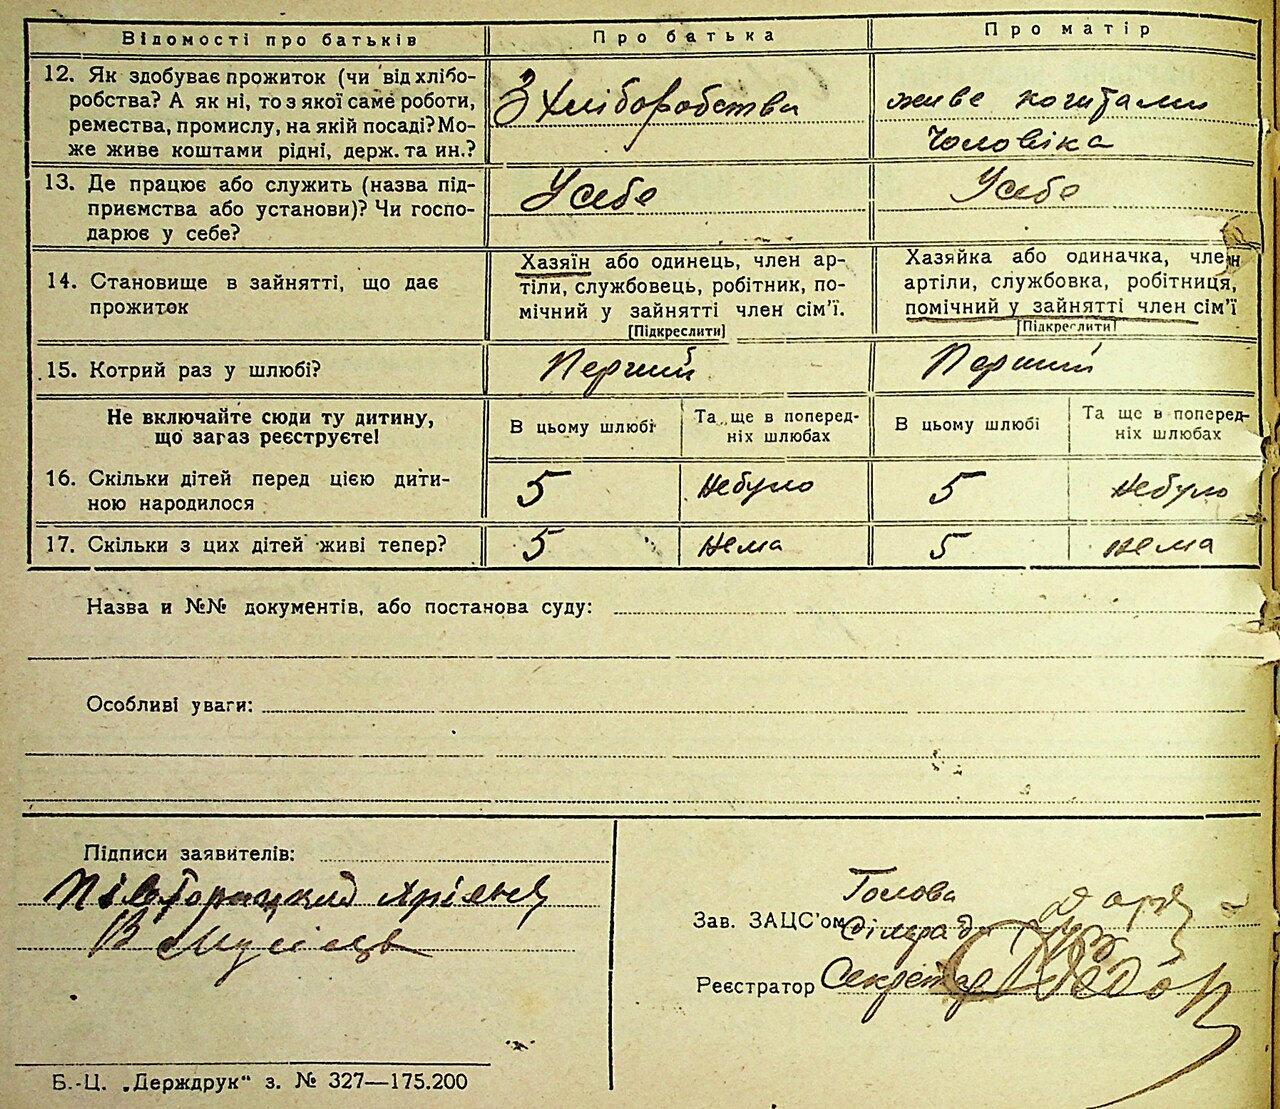 Відомості про батьків Про батька Про матір
12. Як здобуває прожиток (чи від хлібо-
робства? А як ні, то з якої саме роботи,
ремества, промислу, на якій посаді? Мо-
же живе коштами рідні, держ. та ин.?
З хліборобства
живе коштами
чоловіка
13. Де працює або служить (назва під-
приємства або установи)? Чи госпо-
дарює у себе?
У себе
У себе
14. Становище в зайнятті, що дає
прожиток
Хазяїн або одинець, член ар-
тіли, службовець, робітник, по-
мічний у зайнятті член сім'ї.
[Підкреслити]
Хазяйка або одиначка, член
артіли, службовка, робітниця,
помічний у зайнятті член сім'ї
[Підкреслити]
15. Котрий раз у шлюбі?
Перший
Перший
Не включайте сюди ту дитину,
що загаз реєструєте!
В цьому шлюбі
Та ще в поперед-
ніх шлюбах
В цьому шлюбі
Та ще в поперед-
ніх шлюбах
16. Скільки дітей перед цією дити-
ною народилося
5 небуло 5 небуло
17. Скільки з цих дітей живі тепер?
5 нема 5 нема
Назва и №№ документів, або постанова суду:
Особливі уваги:
Підписи заявителів:
Голова
Зав. ЗАЦС'ом сільради
Реєстратор Секретар
Б.-Ц. „Держдрук“ з. № 327—175.200